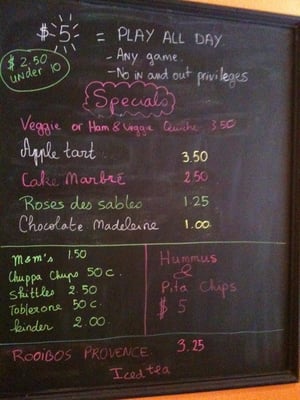 $5 = PLAY ALL DAY
- Any game.
- No in and out privileges
$2.50 under 10
Specials
Veggie or Ham & Veggie Quiche 3.50
Apple tart 3.50
Cake Marbré 2.50
Roses des sables 1.25
Chocolate Madeleine 1.00
M&M's 1.50
Chuppa Chups 50 c.
Skittles 2.50
Toblerone 50 c.
kinder 2.00
Hummus
&
Pita Chips
$5
ROOIBOS PROVENCE 3.25
Iced tea